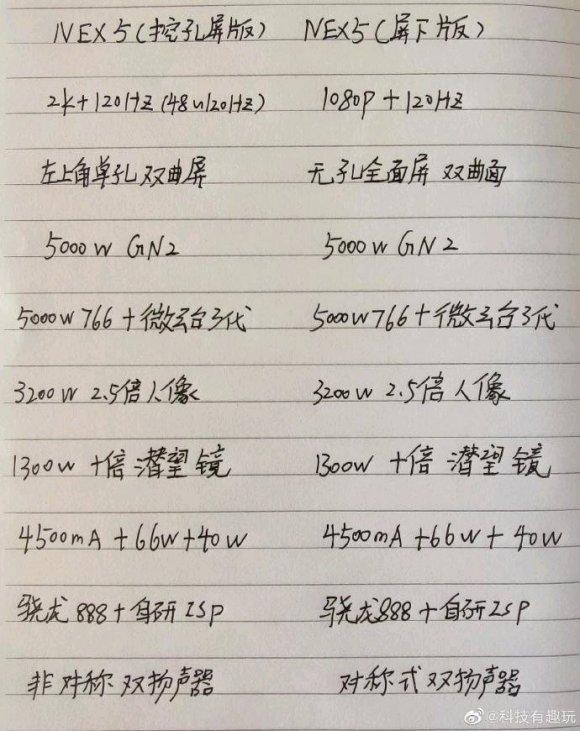 NEX5(挖孔屏版) NEX5(屏下版)
2k+120HZ(48u120HZ) 1080P+120HZ
左上角单孔双曲屏 无孔全面屏 双曲面
5000W GN2 5000W GN2
5000W 766+微云台3代 5000W766+微云台3代
3200W 2.5倍人像 3200W 2.5倍人像
1300W 十倍潜望镜 1300W 十倍 潜望镜
4500mA+66W+40W 4500mA+66W+40W
骁龙888+自研ISP 骁龙888+自研ISP
非对称双扬声器 对称式双扬声器
@科技有趣玩